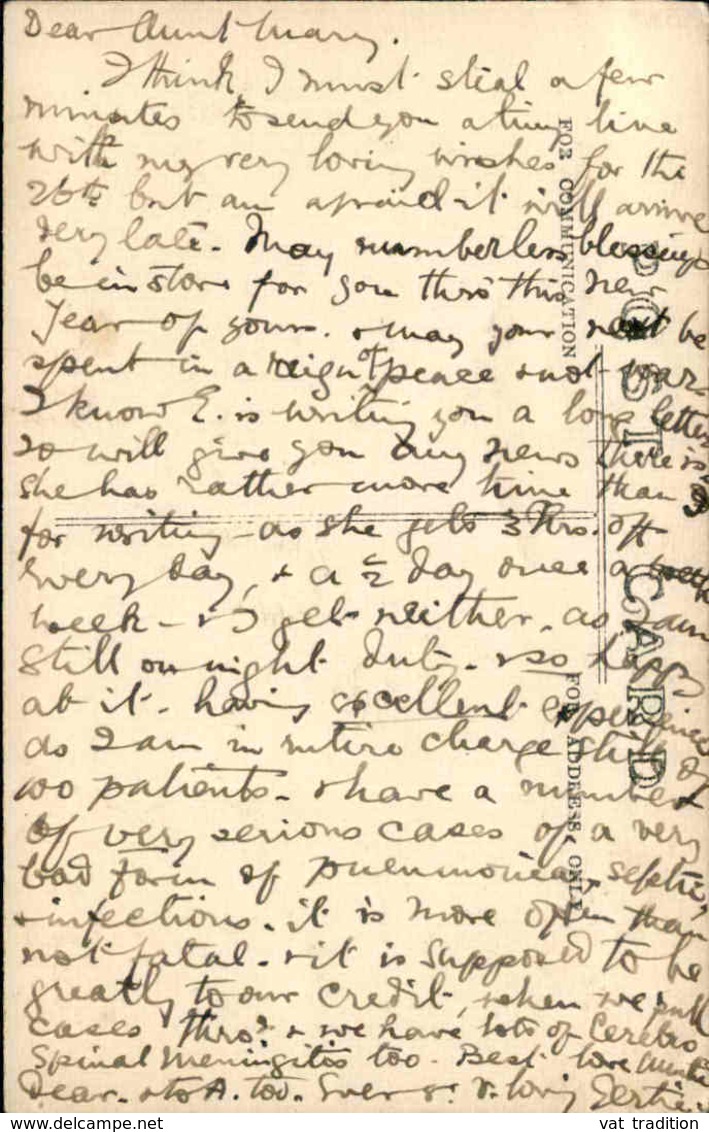 Dear Aunt Mary.
I think I must steal a few
minutes to send you a tiny line
with my very loving wishes for the
26th but am afraid it will arrive
very late. May numberless blessings
be in store for you thro' this new
Year of yours. & may your next be
spent in a reign of peace & not war.
I know E. is writing you a long letter
so will give you any news there is,
she has rather more time than I
for writing as she gets 3 hrs. off
every day, & a ½ day once a
week - & I get neither. as I am
still on night duty. & so happy
at it. having excellent experience
as I am in entire charge still of
100 patients. & have a number
of very serious cases of a very
bad form of pneumonia, septic,
& infectious. it is more often than
not fatal. & it is supposed to be
greatly to our credit, when we pull
cases thro' & we have lots of Cerebro
Spinal Meningitis too. Best love Auntie
Dear. & to A. too. Ever yr. v. loving Gertie.
POST CARD
FOR COMMUNICATION
FOR ADDRESS ONLY
vat tradition